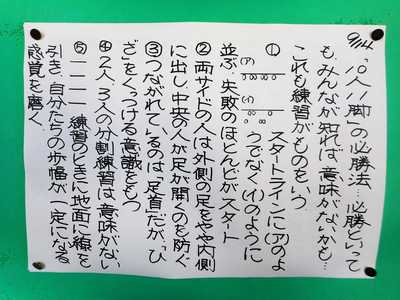 9/14
「10人11脚」の必勝法…必勝といって
も、みんなが知れば、意味がないかも…
これも練習がものをいう。
① スタートラインに(ア)のよ
うでなく(イ)のように
(ア)
(イ)
並ぶ。失敗のほとんどがスタート
②両サイドの人は外側の足をやや内側
に出し、中央の人が足が開くのを防ぐ
③つながれているのは「足首」だが、「ひ
ざ」をくっつける意識をもつ
④2人、3人の分割練習は意味がない
⑤一一一一 練習のときに地面に線を
引き、自分たちの歩幅が一定になる
感覚を磨く。